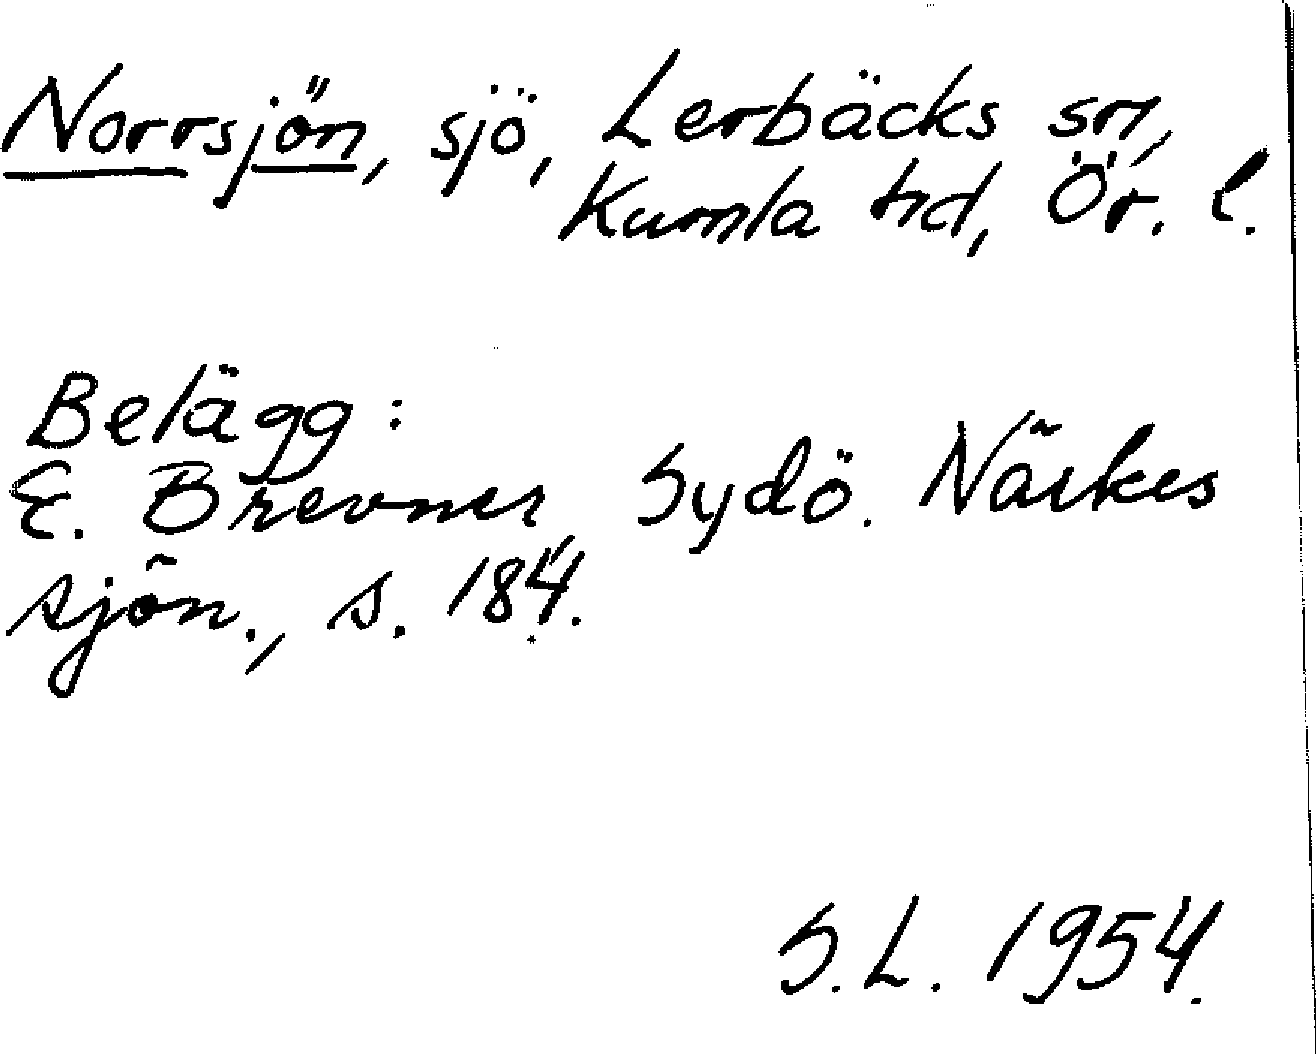 Norrsjön, sjö, Lerbäcks sn,
Kumla hd, Ör. l.
Belägg:
E. Brevner, Sydö. Närkes
sjön., s. 184.
S.L. 1954.